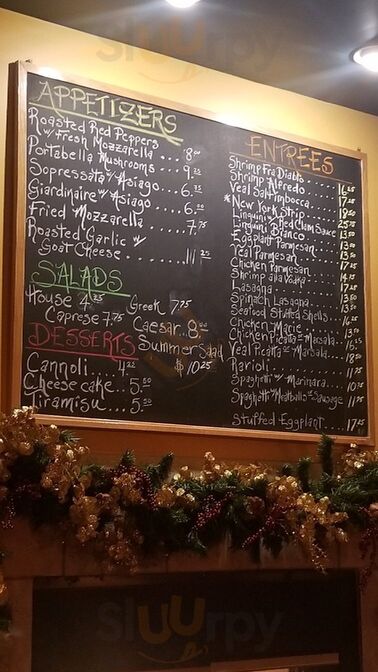 sluurpy
APPETIZERS
Roasted Red Peppers
w/ Fresh Mozzarella ... 8.00
Portabella Mushrooms ... 9.25
Sopressata w/ Asiago ... 6.75
Giardinaire w/ Asiago ... 6.00
Fried Mozzarella ... 7.75
Roasted Garlic w/
Goat Cheese ... 11.25
SALADS
House 4.25 Greek 7.75
Caprese 7.75 Caesar .. 8.00
Summer Salad
$10.25
DESSERTS
Cannoli .... 4.25
Cheese cake .. 5.50
Tiramisu ... 5.50
ENTREES
Shrimp Fra Diablo
Shrimp Alfredo
Veal Saltimbocca
* New York Strip
Linguini w/ Red Clam Sauce
Linguini Bianco
Eggplant Parmesan
Veal Parmesan
Chicken Parmesan
Shrimp ala Vodka
Lasagna
Spinach Lasagna
Seafood Stuffed Shells
Chicken Marie
Chicken Picatta or Marsala
Veal Picatta or Marsala
Ravioli
Spaghetti w/ Marinara
Spaghetti w/ Meatballs or Sausage
Stuffed Eggplant ... 17.25
sluurpy